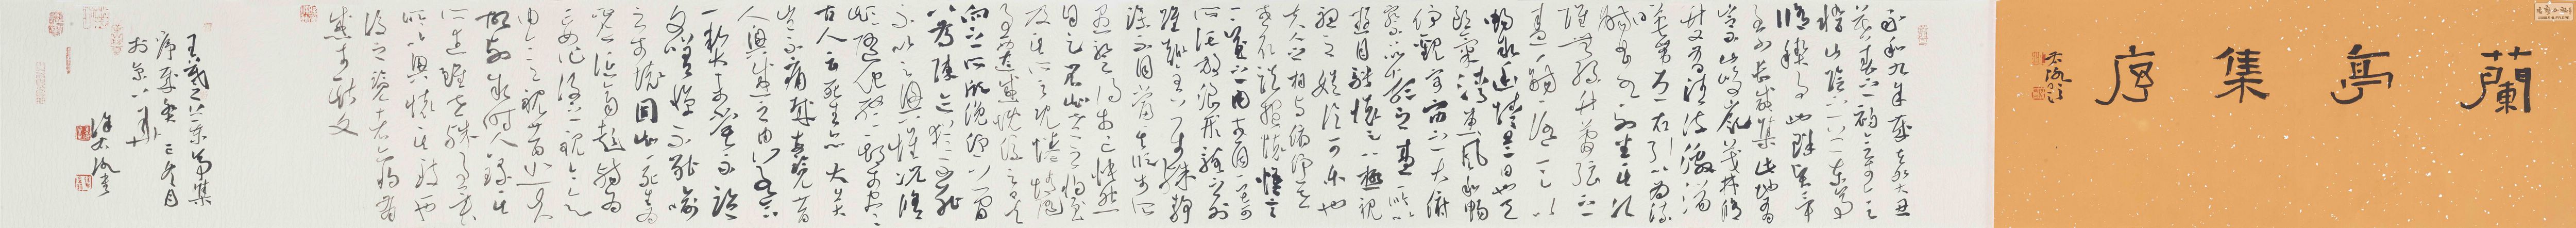 蘭亭集序
永和九年歲在癸丑
暮春之初會于會
稽山陰之蘭亭
脩稧事也群賢畢
至少長咸集此地有
崇山峻嶺茂林脩
竹又有清流激湍
映帶左右引以為流
觴曲水列坐其次
雖無絲竹管弦之
盛一觴一詠亦足以
暢敘幽情是日也天
朗氣清惠風和暢
仰觀宇宙之大俯
察品類之盛所以
遊目騁懷足以極視
聽之娛信可樂也
夫人之相與俯仰一世
或取諸懷抱悟言
一室之內或因寄所
託放浪形骸之外
雖趣舍萬殊靜
躁不同當其欣於所
遇暫得於己快然
自足不知老之將至
及其所之既惓情隨
事遷感慨係之矣
向之所欣俛仰之間
以為陳迹猶不能
不以之興懷況脩
短隨化終期於盡
古人云死生亦大矣
豈不痛哉每覽昔
人興感之由若合
一契未嘗不臨
文嗟悼不能喻
之於懷固知一死生為
虛誕齊彭殤為
妄作後之視今亦
由今之視昔悲夫
故列敘時人錄其
所述雖世殊事異
所以興懷其致一也
後之覽者亦將有
感於斯文
王羲之蘭亭集
序